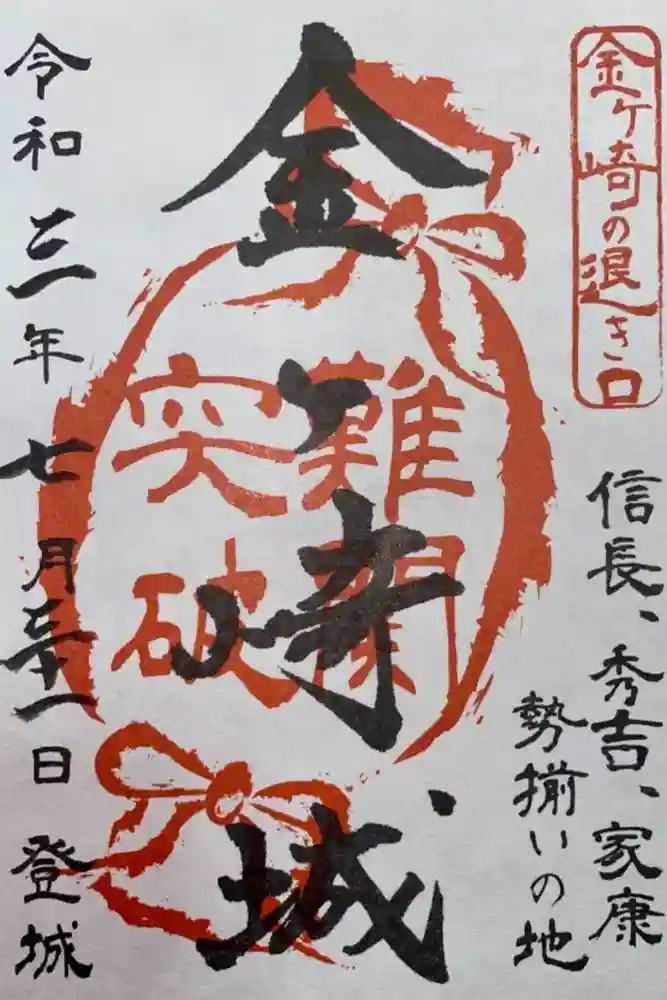 金ヶ崎の退き口
信長、秀吉、家康
勢揃いの地
金ヶ崎城
難関
突破
令和三年七月三十一日登城